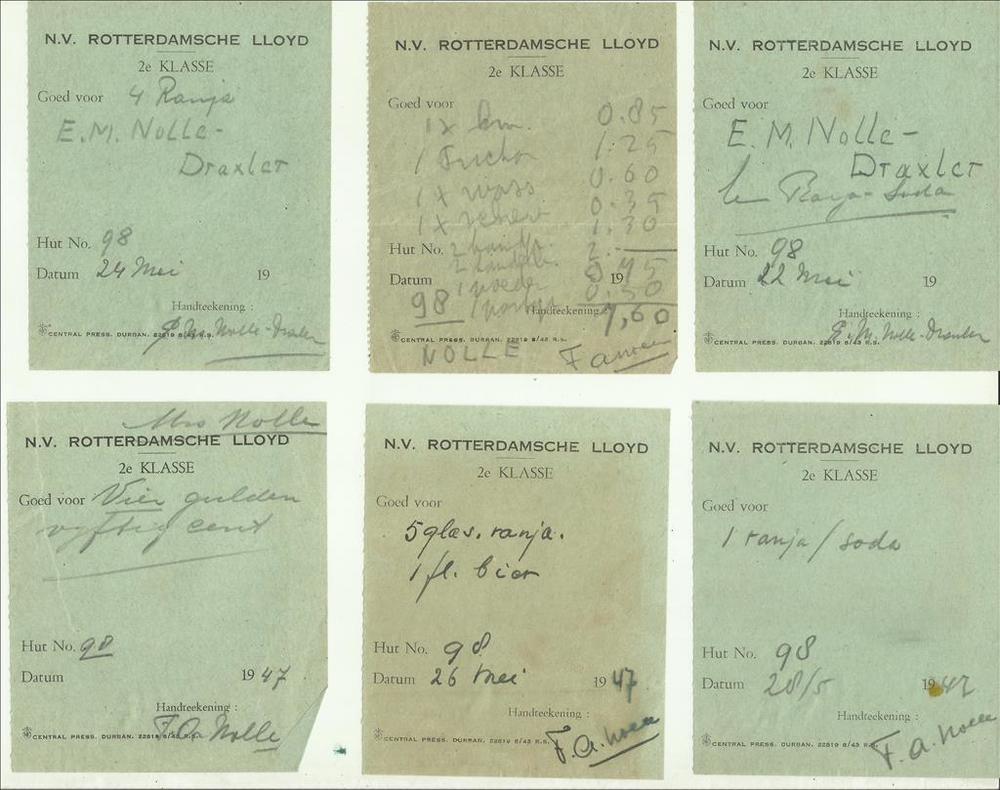 N.V. ROTTERDAMSCHE LLOYD
2e KLASSE
Goed voor 4 Ranja
E.M. Nolle-
Draxler
Hut No. 98
Datum 24 Mei 19
Handteekening :
CENTRAL PRESS. DURBAN. 22819 8/43 R.S.
N.V. ROTTERDAMSCHE LLOYD
2e KLASSE
Goed voor
1 x 0.85
1 1.25
1 x wass 0.60
1 x 0.35
1.30
Hut No. 2 2.-
Datum 19
98 Handteekening 7,60
CENTRAL PRESS. DURBAN. 22819 8/43 R.S.
NOLLE
N.V. ROTTERDAMSCHE LLOYD
2e KLASSE
Goed voor
E.M. Nolle-
Draxler
Ranja-Soda
Hut No. 98
Datum 22 Mei 19
Handteekening :
E.M. Nolle-Draxler
CENTRAL PRESS. DURBAN. 22819 8/43 R.S.
Mrs Nolle
N.V. ROTTERDAMSCHE LLOYD
2e KLASSE
Goed voor Vier gulden
vyftig cent
Hut No. 98
Datum 1947
Handteekening :
F.A. Nolle
CENTRAL PRESS. DURBAN. 22819 8/43 R.S.
N.V. ROTTERDAMSCHE LLOYD
2e KLASSE
Goed voor
5 glas. ranja.
1 fl. bier
Hut No. 98
Datum 26 Mei 1947
Handteekening :
F.A. Nolle
CENTRAL PRESS. DURBAN. 22819 8/43 R.S.
N.V. ROTTERDAMSCHE LLOYD
2e KLASSE
Goed voor
1 ranja / soda
Hut No. 98
Datum 28/5 1947
Handteekening :
F.A. Nolle
CENTRAL PRESS. DURBAN. 22819 8/43 R.S.